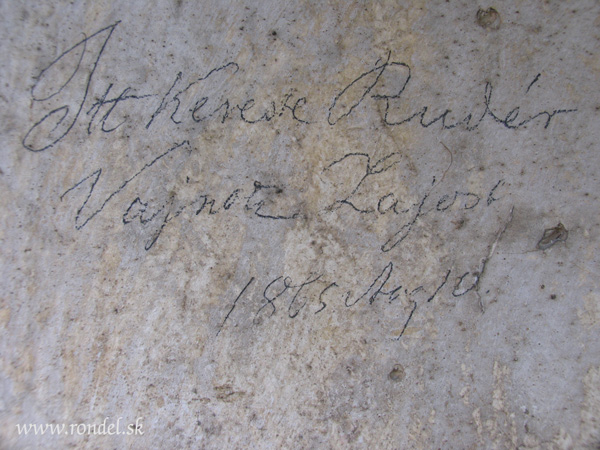 Itt Kereste Rudér
Vajnok Lajost
1865 Aug 10.
www.rondel.sk